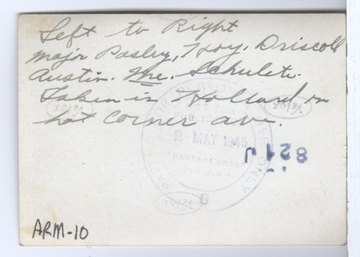 Left to Right
Major Pasley, Troy. Driscoll
Austin. Me. Schulets.
Taken in Holland on
hot corner ave.
8 MAY 1945
ONLY
8
821J
ARM-10